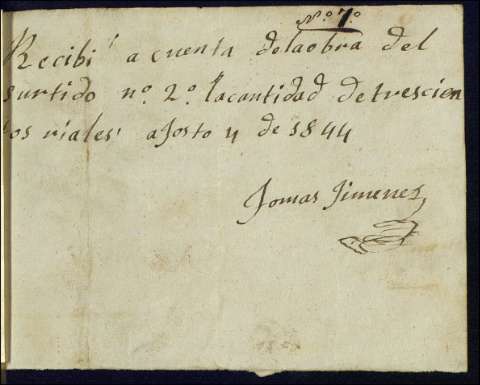 Nº 7º
Recibi a cuenta delaobra del
surtido nº. 2º. lacantidad detrescien
tos riales agosto 4 de 1844
Tomas Jimenez